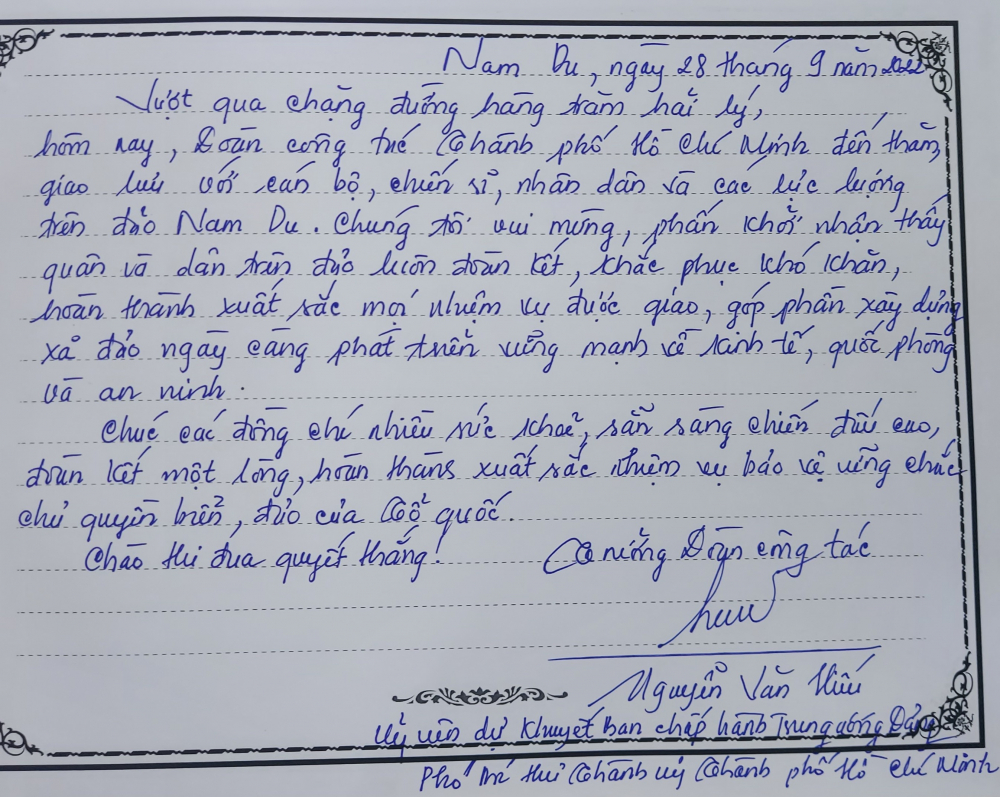 Nam Du, ngày 28 tháng 9 năm 2022
Vượt qua chặng đường hàng trăm hải lý,
hôm nay, Đoàn công tác Thành phố Hồ Chí Minh đến thăm,
giao lưu với cán bộ, chiến sĩ, nhân dân và các lực lượng
trên đảo Nam Du. Chúng tôi vui mừng, phấn khởi nhận thấy
quân và dân trên đảo luôn đoàn kết, khắc phục khó khăn,
hoàn thành xuất sắc mọi nhiệm vụ được giao, góp phần xây dựng
xã đảo ngày càng phát triển vững mạnh về kinh tế, quốc phòng
và an ninh.
Chúc các đồng chí nhiều sức khoẻ, sẵn sàng chiến đấu cao,
đoàn kết một lòng, hoàn thành xuất sắc nhiệm vụ bảo vệ vững chắc
chủ quyền biển, đảo của Tổ quốc.
Chào thi đua quyết thắng!
Trưởng Đoàn công tác
Nguyễn Văn Hiếu
Uỷ viên dự khuyết Ban chấp hành Trung ương Đảng
Phó Bí thư Thành uỷ Thành phố Hồ Chí Minh